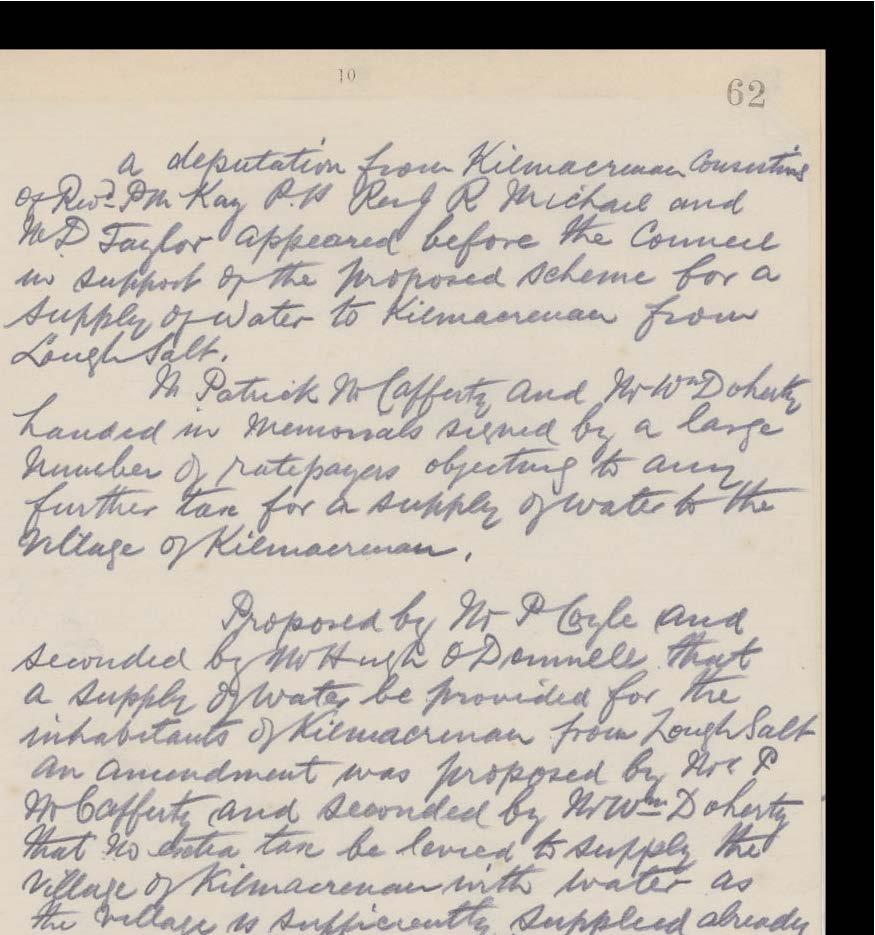 10
62
a deputation from Kilmacrenan Consisting
of Revd P McKay P.P. Revd R Michael and
Mr D Taylor appeared before the Council
in support of the proposed scheme for a
supply of water to Kilmacrenan from
Lough Salt.
Mr Patrick McCafferty and Mr Wm Doherty
handed in Memorials signed by a large
Number of ratepayers objecting to any
further tax for a supply of water to the
Village of Kilmacrenan.
Proposed by Mr P Coyle and
seconded by Mr Hugh O Donnell that
a supply of water be provided for the
inhabitants of Kilmacrenan from Lough Salt
an amendment was proposed by Mr P
McCafferty and seconded by Mr Wm Doherty
that no extra tax be levied to supply the
Village of Kilmacrenan with water as
the village is sufficiently supplied already